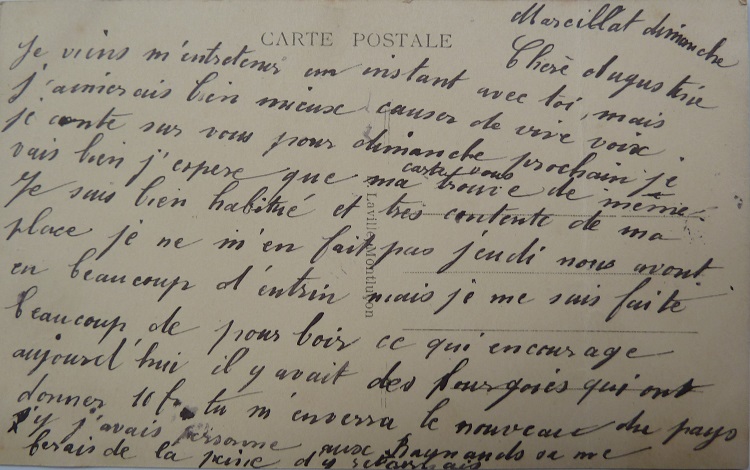 Marcillat dimanche
CARTE POSTALE
Chère Augustine
Je viens m'entretenir un instant avec toi, mais
j'aimerais bien mieux causer de vive voix
je conte sur vous pour dimanche prochain je
vais bien j'espere que ma carte vous trouve de même
Je suis bien habitué et très contente de ma
place je ne m'en fait pas jeudi nous avont
eu beaucoup d'entrin mais je me suis faite
beaucoup de pour boir ce qui encourage
aujourd'hui il y avait des bourgoiés qui ont
donner 10 fr tu m'enverra le nouveau du pays
s'y j'avais personne aux Raynauds sa me
ferais de la peine d'y
Laville Montluçon